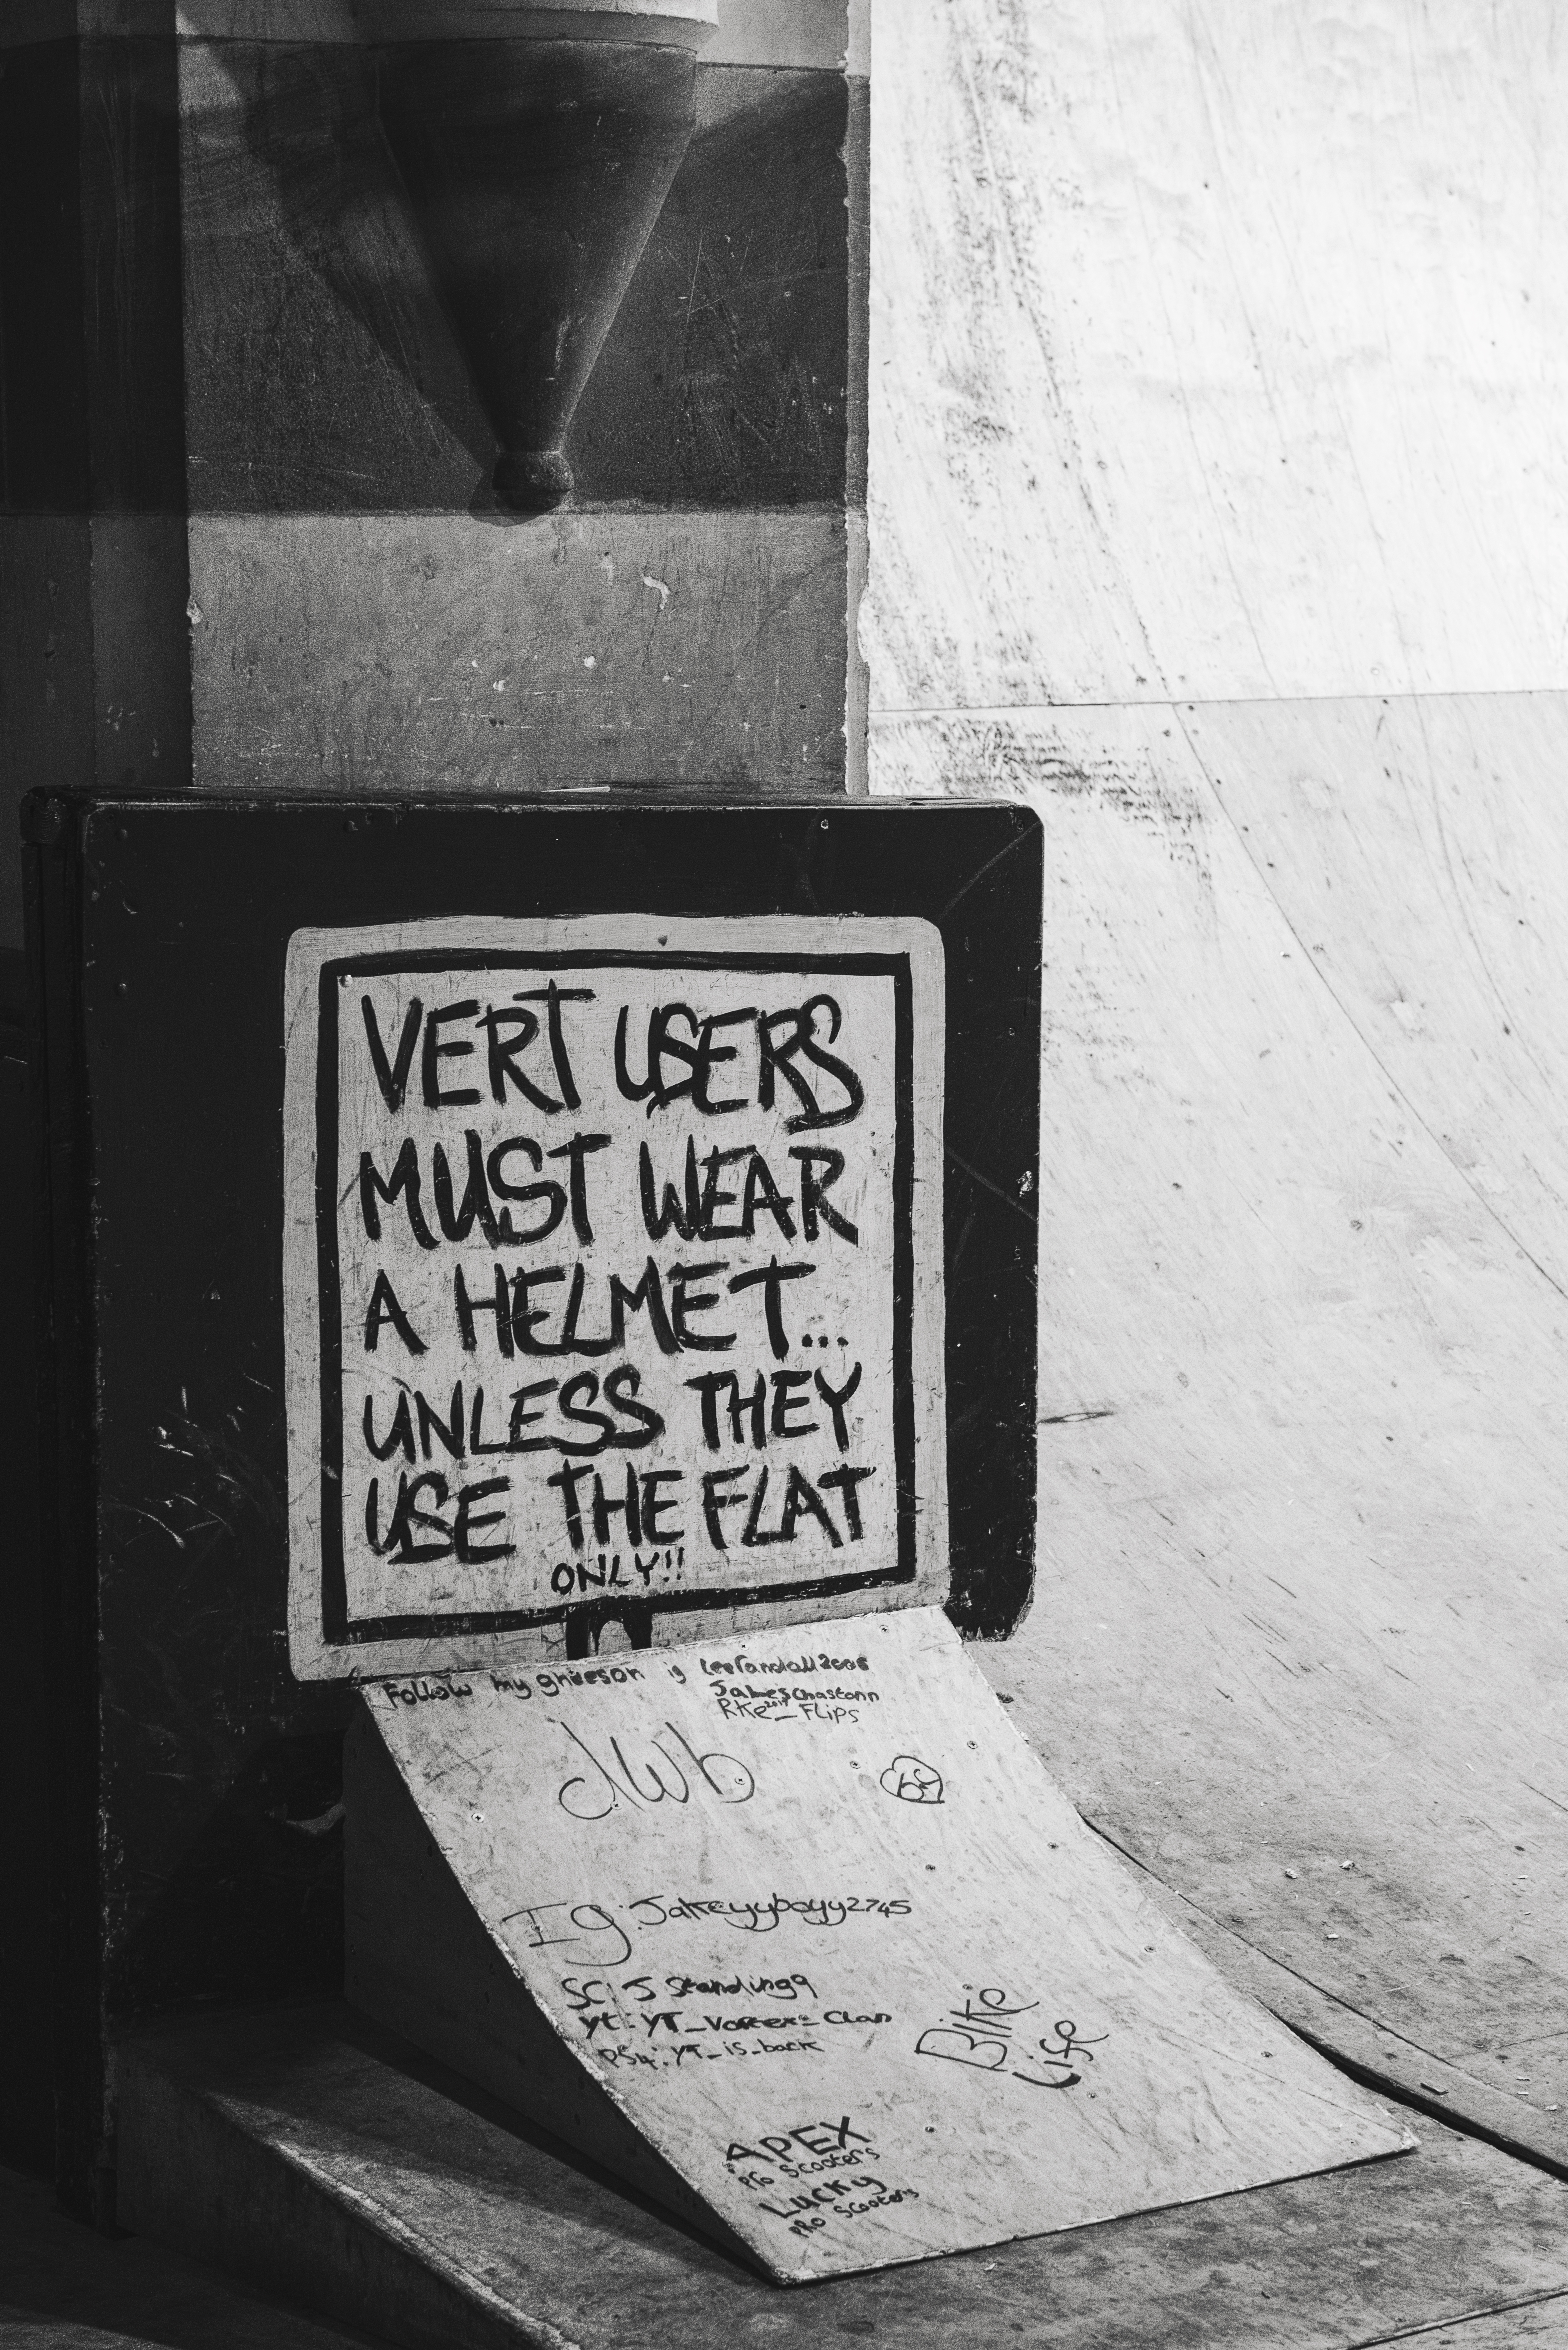 VERT USERS
MUST WEAR
A HELMET...
UNLESS THEY
USE THE FLAT
ONLY!!
Follow my is
Flips
JWB
Ig: Jakeyyboyy2745
SC: J Standing9
yt: Clan
PS4: YT_is_back
BIKE
Life
APEX
Pro Scooters
Lucky
PRO Scooters